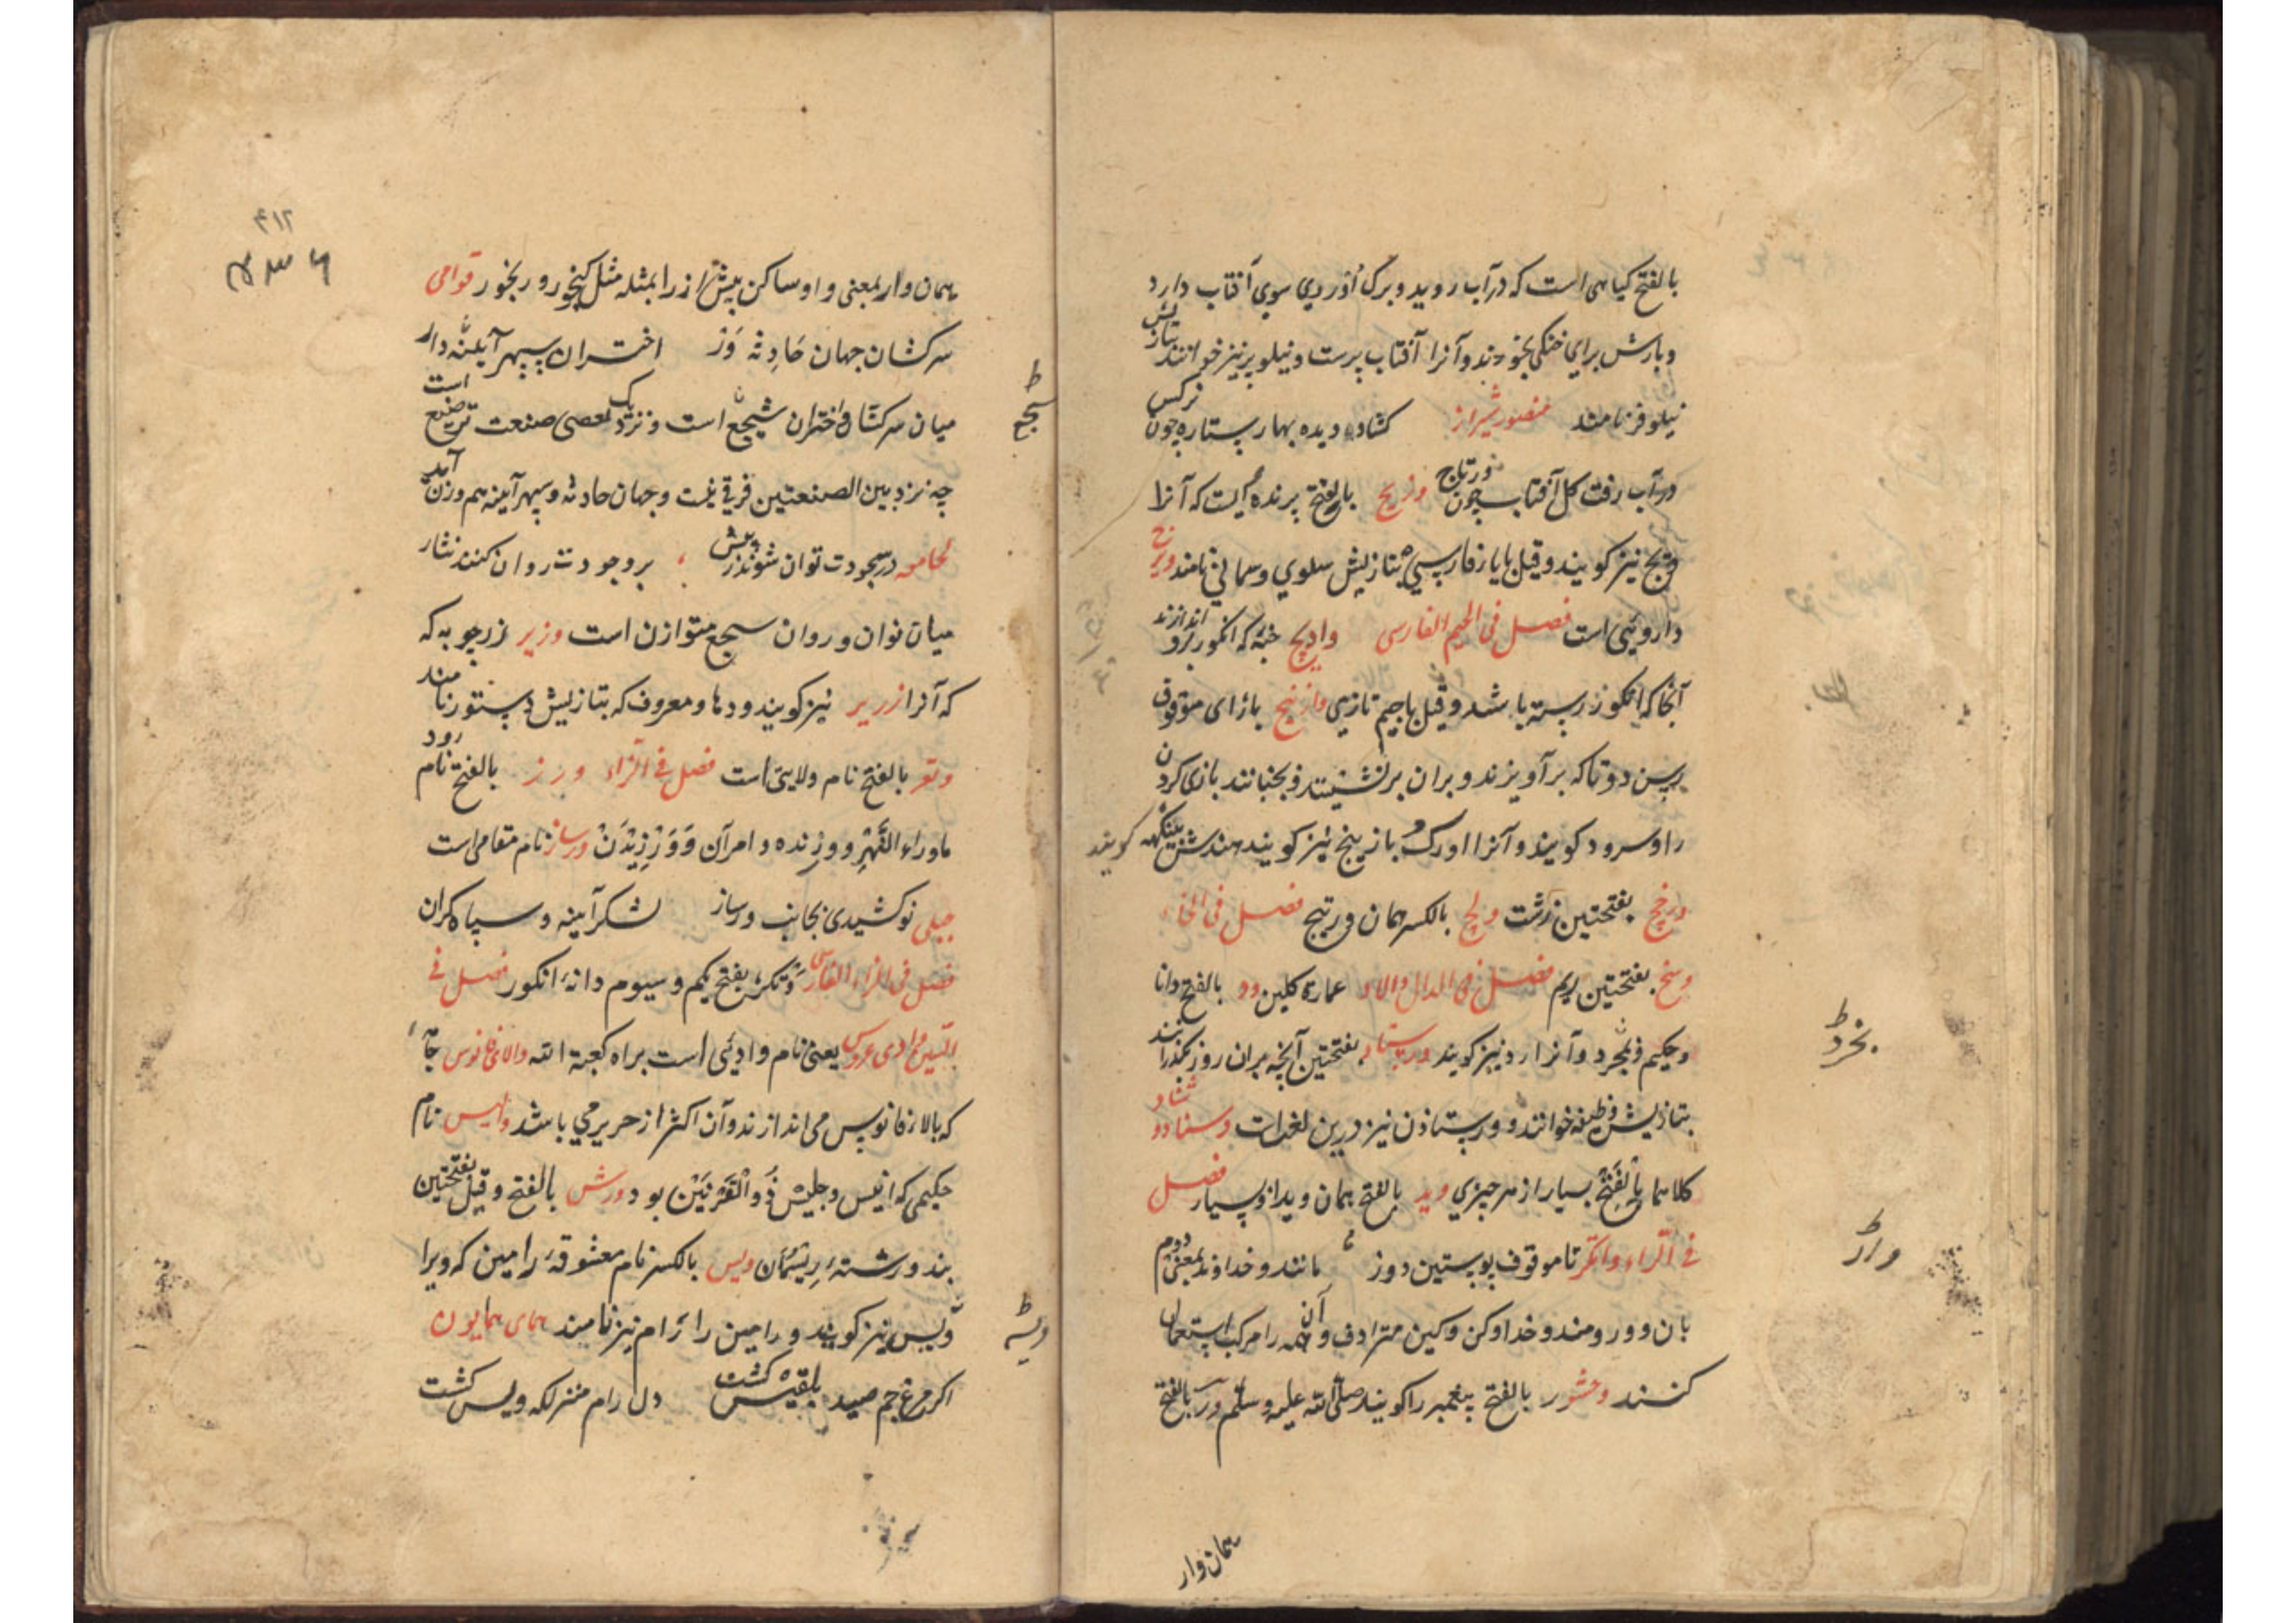 بالفتح کیاهی است که در آب روید و برک او روی سوی آفتاب دارد
و بارش برای خنکی بخورند و آنرا آفتاب پرست و نیلوپر نیز خوانند بتازیش
نیلوفر نامند منصور شیراز کشاده دیده بهار ستاره چون نرکس
در آب رفت کل آفتاب چون ورتاج ورتیج بالفتح پرنده ایست که آنرا
وتج نیز کویند و قیل بایاء فارسی بتازیش سلوی و سمانی نامند ورج
داروئی است فصل فی الجیم الفارسی وادیج خنبه که انکور برو اندازند
آنجا که انکور رسته باشد و قیل باجیم تازی وازنیج بازای موقوف
رسن دوتا که برآویزند و بران برنشینند و بجنبانند بازی کردن
را و سرود کویند و آنرا اورک و بازپیچ نیز کویند هندش پینکهه کویند
ورخج بفتحتین زشت ولج بالکسر همان ورتیج فصل فی الخاء
وسخ بفتحتین ریم فصل فی الدال والاد عمارة کلین ود بالفتح دانا
و حکیم و بخرد و آنرا رد نیز کویند ورستاد بفتحتین آنچه بران روز کذرانند
بتازیش وظیفه خوانند و ورستادن نیز درین لغت است وسناد و وشناد
کلاهما بالفتح بسیار از هر چیزی وید بالفتح همان ویدا و بسیار فصل
فی الراء واتکر تا موقوف پوستین دوز مانند و خداوند بمعنی دوم
بان و ور و مند و خداوکن و کین مترادف و آن همه را مرکب استعمال
کنند وخشور بالفتح پیغمبر را کویند صلی الله علیه وسلم ور بالفتح
بخرد
واژ
همان وار
۴۱۲
همان وار بمعنی واو ساکن پیش از را بمثله مثل کنجور و رنجور قوامی
سرکشان جهان حادثه وز اختران سپهر آینه دار
میان سرکشان و اختران سجع است و نزدیک بعضی صنعت ترصیع است
چه نزد بین الصنعتین فرقی نیست و جهان حادثه و سپهر آینه هم وزن آمد
لحامعه در سجودت توان شوند زپیش بر وجودت روان کنند نثار
میان توان و روان سجع متوازن است وزیر زرچوبه که
که آنرا زریر نیز کویند و دها و معروف که بتازیش دستور نامند
وتعر بالفتح نام ولایتی است فصل فی الزاء ورز بالفتح نام رود
ماوراء النهر و ورزنده و امر آن وورزیدن ورساز نام مقامی است
جبلی نوکشیدی بجانب ورساز لشکر آینه و سپاه کران
فصل فی الزاء الفارسی وتکژ بفتح یکم و سیوم دانهٔ انکور فصل فی
السین وادی عروس یعنی نام وادئی است براه کعبة الله والای فانوس جامهٔ
که بالاء فانوس می اندازند و آن اکثر از حریر می باشد والیس نام
حکیمی که انیس و جلیس ذوالقرنین بود ورس بالفتح و قیل بفتحتین
بند و رشتهٔ ریسمان ویس بالکسر نام معشوقهٔ رامین که ویرا
ویسه نیز کویند و رامین را رام نیز نامند همای همایون
اکر مرغ جم صید بلقیس کشت دل رام منزلکه ویس کشت
سجع
ویسه